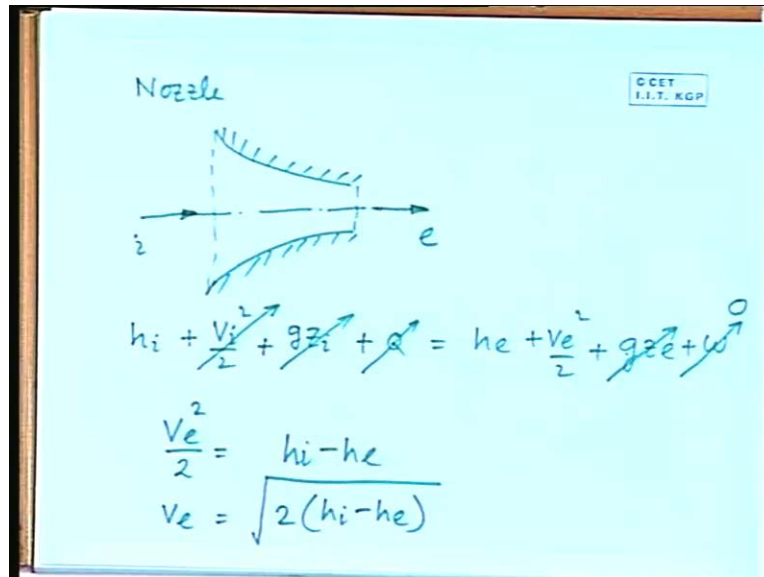 Nozzle
© CET
I.I.T. KGP
i
e
hi + Vi²/2 + gzi + Q = he + Ve²/2 + gze + w 0
Ve²/2 = hi - he
Ve = √2(hi - he)